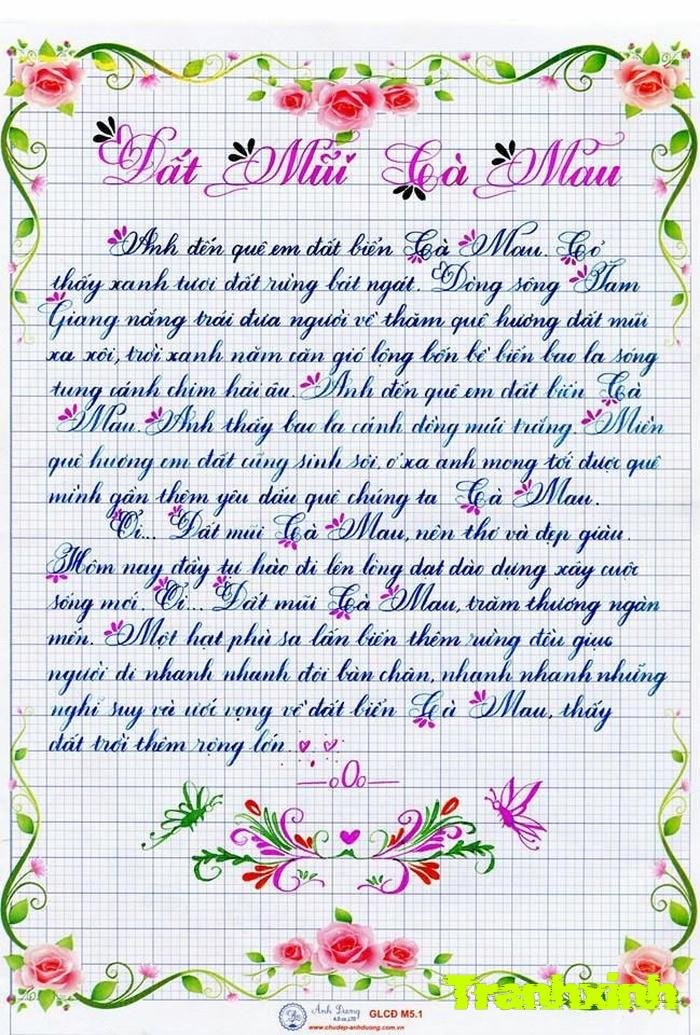 Đất Mũi Cà Mau
Anh đến quê em đất biển Cà Mau. Có
thấy xanh tươi đất rừng bát ngát. Dòng sông Tam
Giang nắng trải đưa người về thăm quê hương đất mũi
xa xôi, trời xanh năm căn gió lộng bốn bề biển bao la sóng
tung cánh chim hải âu. Anh đến quê em đất biển Cà
Mau. Anh thấy bao la cánh đồng muối trắng. Miền
quê hương em đất cũng sinh sôi, ở xa anh mong tới được quê
mình gần thêm yêu dấu quê chúng ta Cà Mau.
Ơi... Đất mũi Cà Mau, nên thơ và đẹp giàu.
Hôm nay đây tự hào đi lên lòng dạt dào dựng xây cuộc
sống mới. Ơi... Đất mũi Cà Mau, trăm thương ngàn
mến. Một hạt phù sa lấn biển thêm rừng đều giục
người đi nhanh nhanh đôi bàn chân, nhanh nhanh những
nghĩ suy và ước vọng về đất biển Cà Mau, thấy
đất trời thêm rộng lớn.
—oOo—
Ánh Dương
GLCĐ M5.1
www.chudep-anhduong.com.vn
Tranhxinh